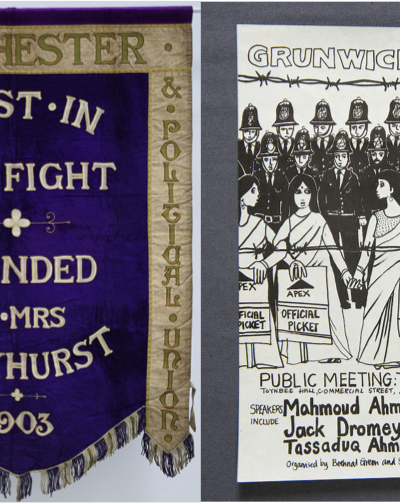 HESTER
ST·IN
FIGHT
NDED
·MRS
HURST
1903
·&·POLITICAL·UNION·
GRUNWICK
APEX
OFFICIAL
PICKET
PEX
FICIAL
PICKET
PUBLIC MEETING:
TOYNBEE HALL, COMMERCIAL STREET,
SPEAKERS
INCLUDE
Mahmoud Ahm
Jack Dromey
Tassaduq Ahm
Organised by Bethnal Green and S